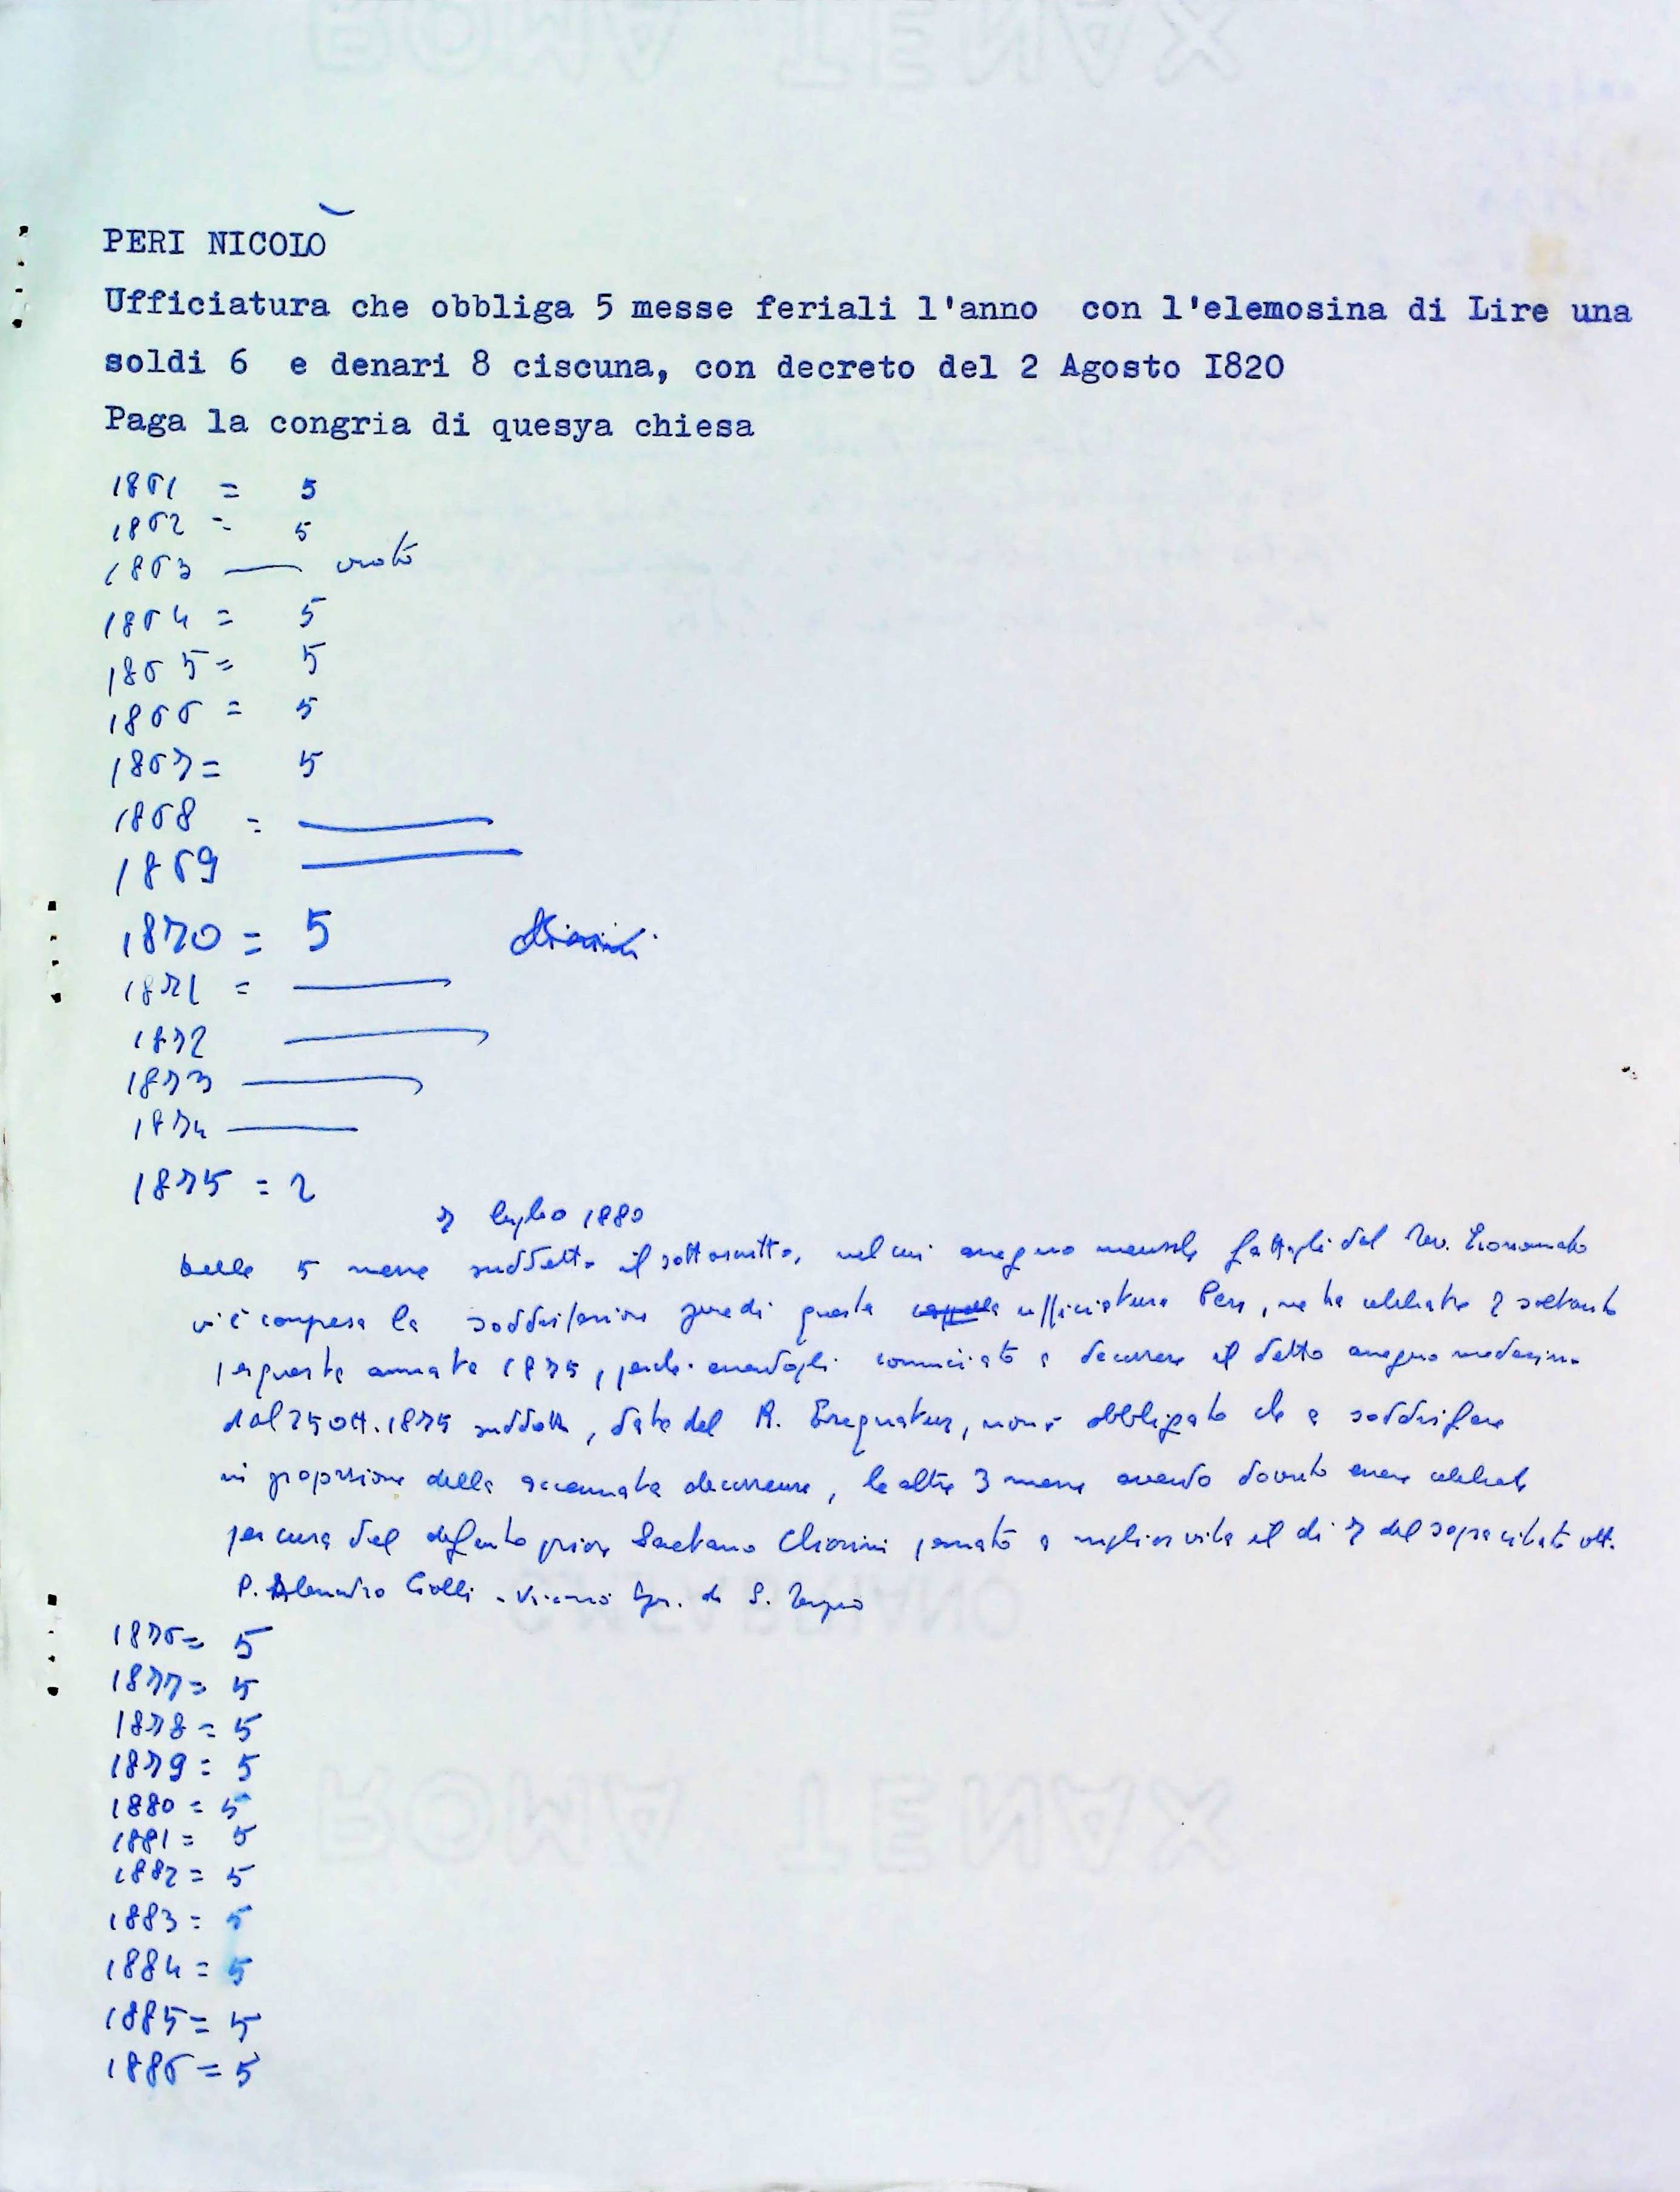 PERI NICOLÒ
Ufficiatura che obbliga 5 messe feriali l'anno con l'elemosina di Lire una
soldi 6 e denari 8 ciscuna, con decreto del 2 Agosto I820
Paga la congria di quesya chiesa
1861 = 5
1862 = 5
1863 — vuoto
1864 = 5
1865 = 5
1866 = 5
1867 = 5
1868 = —
1869 —
1870 = 5
1871 = —
1872 —
1873 —
1874 —
1875 = 2
7 luglio 1880
Delle 5 messe suddette il sottoscritto, nel cui assegno mensile fattogli dal Rev. Economato
vi è compresa la soddisfazione di questa ufficiatura Peri, ne ha celebrate 2 soltanto
per questa annata 1875, perché essendogli cominciato a decorrere il detto assegno
dal 25 ott. 1875 suddetto, data del R. Exequatur, non è obbligato che a soddisfare
in proporzione della accennata decorrenza, le altre 3 messe avendo dovuto essere celebrate
per cura del defunto prior Gaetano Chiarini passato a miglior vita il dì 7 del sopracitato ott.
P. Alessandro Ciolli - Vicario Sp. di S.
1876 = 5
1877 = 5
1878 = 5
1879 = 5
1880 = 5
1881 = 5
1882 = 5
1883 = 5
1884 = 5
1885 = 5
1886 = 5
ROMA TENAX
ROMA TENAX